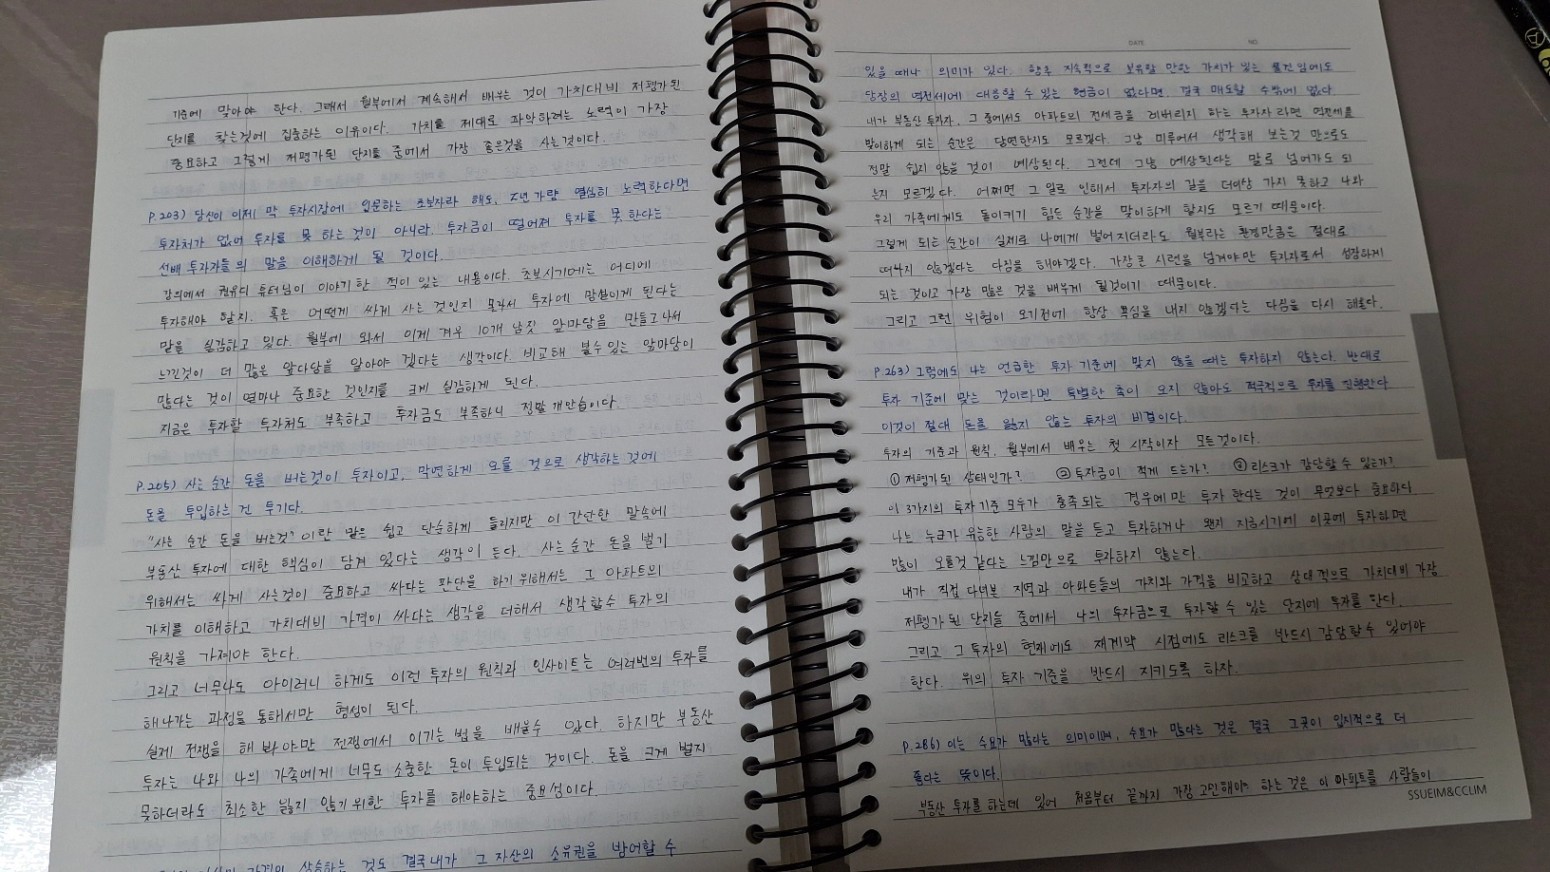 기준에 맞아야 한다. 그래서 월부에서 계속해서 배우는 것이 가치대비 저평가된
단지를 찾는것에 집중하는 이유이다. 가치를 제대로 파악하려는 노력이 가장
중요하고 그렇게 저평가된 단지들 중에서 가장 좋은것을 사는것이다.
P.203) 당신이 이제 막 투자시장에 입문하는 초보자라 해도, 2년 가량 열심히 노력한다면
투자처가 없어 투자를 못 하는 것이 아니라, 투자금이 떨어져 투자를 못 한다는
선배 투자자들의 말을 이해하게 될 것이다.
강의에서 권유디 튜터님이 이야기한 적이 있는 내용이다. 초보시기에는 어디에
투자해야 할지, 혹은 어떤게 싸게 사는 것인지 몰라서 투자에 망설이게 된다는
말을 실감하고 있다. 월부에 와서 이제 겨우 10개 남짓 앞마당을 만들고나서
느낀것이 더 많은 앞마당을 알아야 겠다는 생각이다. 비교해 볼수 있는 앞마당이
많다는 것이 얼마나 중요한 것인지를 크게 실감하게 된다.
지금은 투자할 투자처도 부족하고 투자금도 부족하니 정말 개만습이다.
P.205) 사는 순간 돈을 버는것이 투자이고, 막연하게 오를 것으로 생각하는것에
돈을 투입하는 건 투기다.
"사는 순간 돈을 버는것" 이란 말은 쉽고 단순하게 들리지만 이 간단한 말속에
부동산 투자에 대한 핵심이 담겨 있다는 생각이 든다. 사는순간 돈을 벌기
위해서는 싸게 사는것이 중요하고 싸다는 판단을 하기 위해서는 그 아파트의
가치를 이해하고 가치대비 가격이 싸다는 생각을 더해서 생각할수 투자의
원칙을 가져야 한다.
그리고 너무나도 아이러니 하게도 이런 투자의 원칙과 인사이트는 여러번의 투자를
해나가는 과정을 통해서만 형성이 된다.
실제 전쟁을 해 봐야만 전쟁에서 이기는 법을 배울수 있다. 하지만 부동산
투자는 나와 나의 가족에게 너무도 소중한 돈이 투입되는 것이다. 돈을 크게 벌지
못하더라도 최소한 잃지 않기 위한 투자를 해야하는 중요성이다.
가격이 상승하는 것도 결국 내가 그 자산의 소유권을 방어할 수
DATE NO
있을 때나 의미가 있다. 향후 지속적으로 보유할 만한 가치가 있는 물건임에도
당장의 역전세에 대응할 수 있는 현금이 없다면, 결국 매도할 수밖에 없다.
내가 부동산 투자자, 그 중에서도 아파트의 전세금을 레버리지 하는 투자자라면 역전세를
맞이하게 되는 순간은 당연한지도 모르겠다. 그냥 미루어서 생각해 보는것 만으로도
정말 쉽지 않을 것이 예상된다. 그런데 그냥 예상된다는 말로 넘어가도 되
는지 모르겠다. 어쩌면 그 일로 인해서 투자자의 길을 더이상 가지 못하고 나와
우리 가족에게도 돌이키기 힘든 순간을 맞이하게 할지도 모르기 때문이다.
그렇게 되는 순간이 실제로 나에게 벌어지더라도 월부라는 환경만큼은 절대로
떠나지 않겠다는 다짐을 해야겠다. 가장큰 시련을 넘겨야만 투자자로서 성장하게
되는 것이고 가장 많은 것을 배우게 될것이기 때문이다.
그리고 그런 위험이 오기전에 항상 욕심을 내지 않겠다는 다짐을 다시 해본다.
P.263) 그럼에도 나는 언급한 투자 기준에 맞지 않을 때는 투자하지 않는다. 반대로
투자 기준에 맞는 것이라면 특별한 흐이 오지 않아도 적극적으로 투자를 진행한다.
이것이 절대 돈을 잃지 않는 투자의 비결이다.
투자의 기준과 원칙, 월부에서 배우는 첫 시작이자 모든것이다.
① 저평가된 상태인가? ② 투자금이 적게 드는가? ③ 리스크가 감당할 수 있는가?
이 3가지의 투자기준 모두가 충족 되는 경우에만 투자 한다는 것이 무엇보다 중요하다
나는 누군가 유능한 사람의 말을 듣고 투자하거나 왠지 지금시기에 이곳에 투자하면
많이 오를것 같다는 느낌만으로 투자하지 않는다.
내가 직접 다녀본 지역과 아파트들의 가치와 가격을 비교하고 상대적으로 가치대비 가장
저평가 된 단지들 중에서 나의 투자금으로 투자할 수 있는 단지에 투자를 한다.
그리고 그 투자의 현재에도 재계약 시점에도 리스크를 반드시 감당할 수 있어야
한다. 위의 투자 기준을 반드시 지키도록 하자.
P.286) 이는 수요가 많다는 의미이며, 수요가 많다는 것은 결국 그곳이 입지적으로 더
좋다는 뜻이다.
부동산 투자를 하는데 있어 처음부터 끝까지 가장 고민해야 하는 것은 이 아파트를 사람들이
SSUEIM&CCLIM